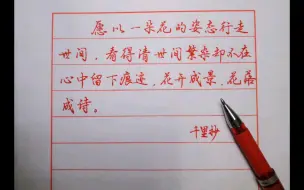 愿以一朵花的姿态行走
世间，看得清世间繁杂却不在
心中留下痕迹，花开成景，花落
成诗。
千里妙